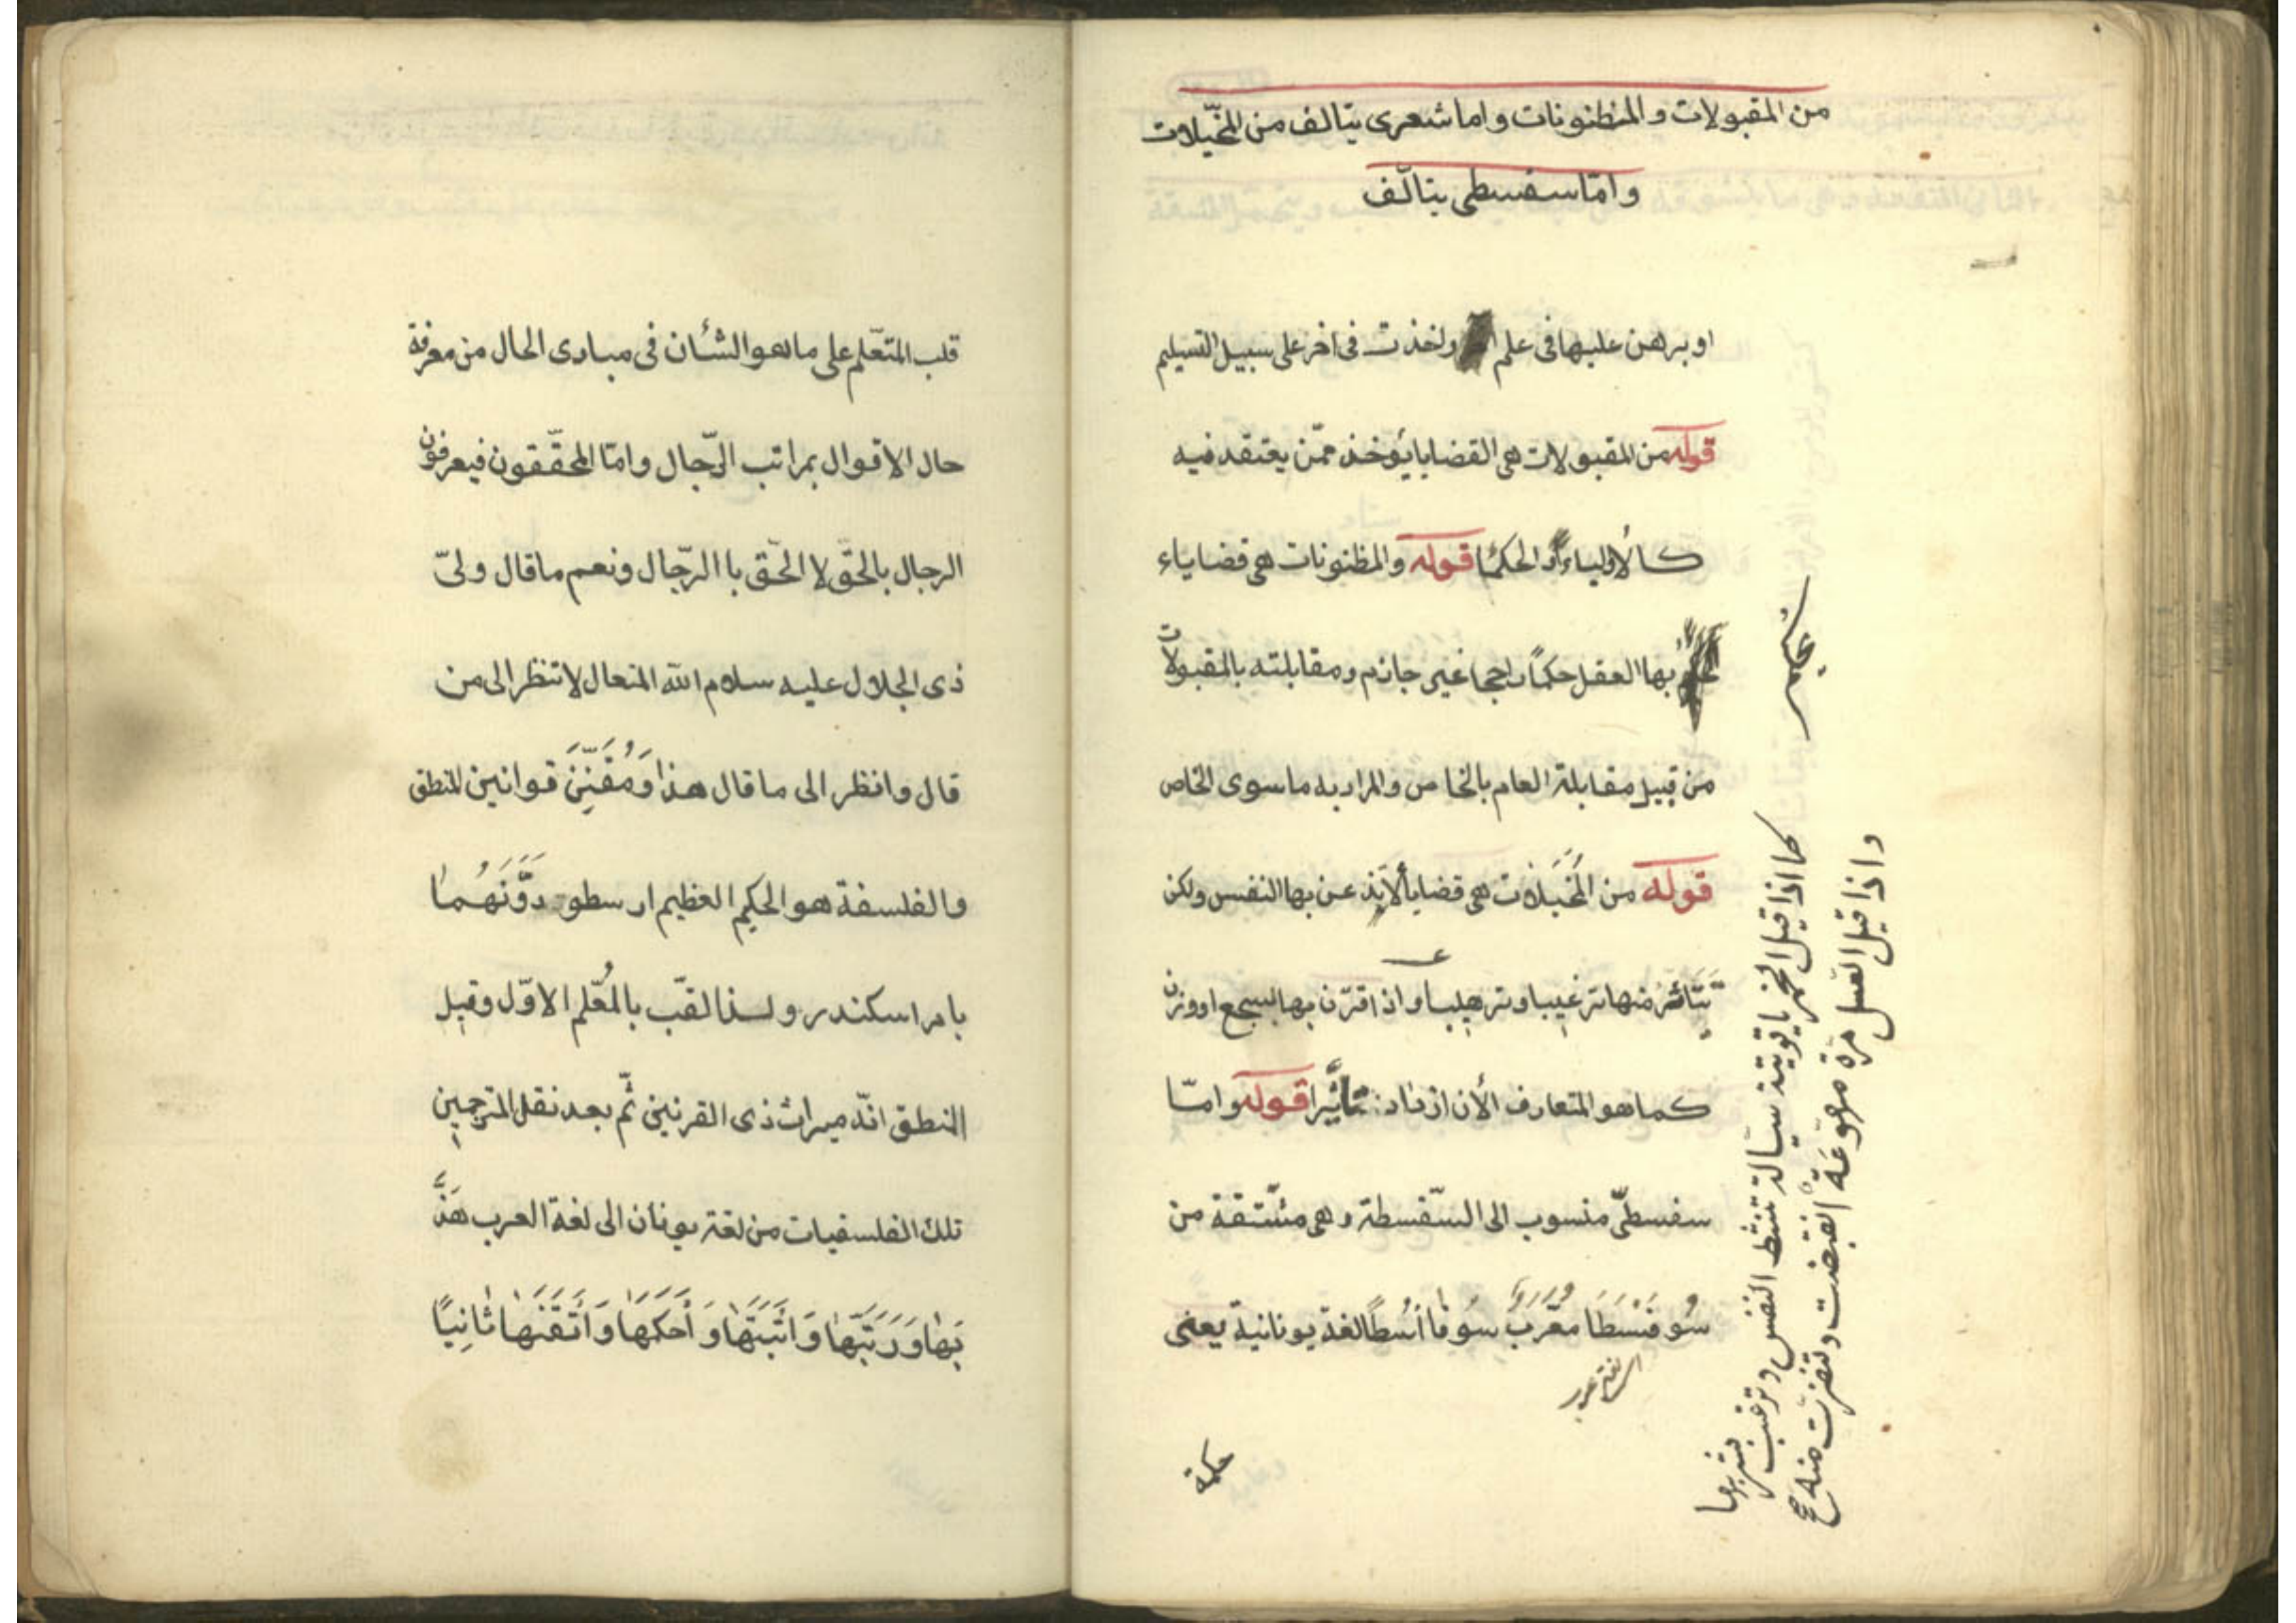 من المقبولات والمظنونات واما شعرى يتالف من المخيّلات
وامّا سفسطى يتالّف
او برهن عليها فى علم واخذت فى اخر على سبيل التسليم
قوله من المقبولات هى القضايا يؤخذ ممّن يعتقد فيه
كالأولياء والحكما قوله والمظنونات هى قضاياء
بها العقل حكمًا راجحا غير جازم ومقابلته بالمقبولات
من قبيل مقابلة العام بالخاص والمراد به ما سوى الخاص
قوله من المُخَيَّلات هى قضايا ألا يذعن بها النفس ولكن
تتأثر منها ترغيبا وترهيبا واذ اقترن بها سجع او وزن
كما هو المتعارف الأن ازداد تأثيرا قوله وامّا
سفسطىّ منسوب الى السّفسطة وهى مشتقة من
سُوفَسْطَا معّرب سُوفا أسْطا لغة يونانية يعنى
حكمة
يحكم
كما اذا قيل الخمر ياقوتة سيالة تنشط النفس وترغب
بشربها
واذا قيل العسل مرّة مهوّعة انقبضت وتنفرت منه صح
قلب المتعّلم على ما هو الشأن فى مبادى الحال من معرفة
حال الاقوال بمراتب الرّجال وامّا المحقّقون فيعرفون
الرجال بالحقّ لا الحقّ با الرّجال ونعم ما قال ولىّ
ذى الجلال عليه سلام الله المتعال لا تنظر الى من
قال وانظر الى ما قال هذا وَمُقَنِّنَ قوانين المنطق
والفلسفة هو الحكيم العظيم ارسطو دَوَّنَهُمَا
بامر اسكندر ولذا لقّب بالمُعّلم الاوّل وقيل
المنطق انّه ميراث ذى القرنين ثّم بعد نقل المترجمين
تلك الفلسفيات من لغة يونان الى لغة العرب هَذَّ
بَهَا وَرَتَّبَهَا وَاثَبَتَهَا وَأَحَكَمَهَا وَأَتَقَنَهَا ثَانِيًا